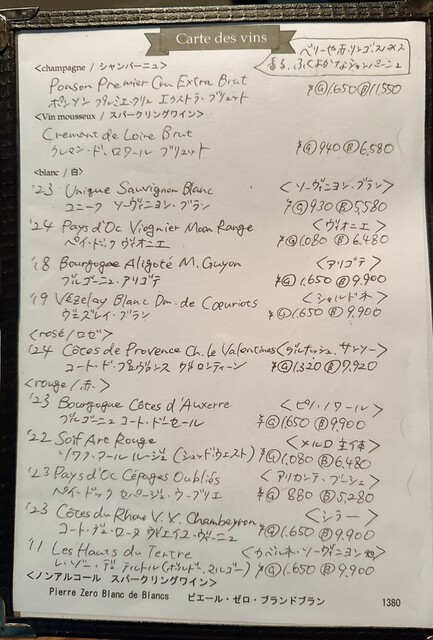 Carte des vins
ベリーや赤リンゴ、スパイス
香る、ふくよかなシャンパーニュ
<champagne / シャンパーニュ>
Poinson Premier Cru Extra Brut
ポワソン プルミエ・クリュ エクストラ・ブリュット ¥Ⓖ1,650 Ⓑ11,550
<Vin mousseux / スパークリングワイン>
Cremant de Loire Brut
クレマン・ド・ロワール ブリュット ¥Ⓖ940 Ⓑ6,580
<blanc / 白>
'23 Unique Sauvignon Blanc <ソーヴィニヨン・ブラン>
ユニーク ソーヴィニヨン・ブラン ¥Ⓖ930 Ⓑ5,580
'24 Pays d'Oc Viognier Moon Range <ヴィオニエ>
ペイ・ドック ヴィオニエ ¥Ⓖ1,080 Ⓑ6,480
'18 Bourgogne Aligoté M. Guyon <アリゴテ>
ブルゴーニュ・アリゴテ ¥Ⓖ1,650 Ⓑ9,900
'19 Vézelay Blanc Dm. de Cœuriots <シャルドネ>
ヴェズレイ・ブラン ¥Ⓖ1,650 Ⓑ9,900
<rosé/ロゼ>
'24 Côtes de Provence Ch. le Valentines <グルナッシュ、サンソー>
コート・ド・プロヴァンス ヴァロンティーン ¥Ⓖ1,320 Ⓑ7,920
<rouge/赤>
'23 Bourgogne Côtes d'Auxerre <ピノ・ノワール>
ブルゴーニュ コート・ドーセール ¥Ⓖ1,650 Ⓑ9,900
'22 Soif Art Rouge <メルロ主体>
ソワフ・アール ルージュ (シュッド・ウェスト) ¥Ⓖ1,080 Ⓑ6,480
'23 Pays d'Oc Cépages Oubliés <アリカンテ・ブーシェ>
ペイ・ドック セパージュ・ウーブリエ ¥Ⓖ880 Ⓑ5,280
'23 Côtes du Rhône V.V. Chambeyron <シラー>
コート・デュ・ローヌ ヴィエイユ・ヴィーニュ ¥Ⓖ1,650 Ⓑ9,900
'11 Les Hauts du Tertre <カベルネ・ソーヴィニヨン他>
レ・ゾー・デュ・テルトル (ボルドー、マルゴー) ¥Ⓖ1,650 Ⓑ9,900
<ノンアルコール スパークリングワイン>
Pierre Zero Blanc de Blancs ピエール・ゼロ・ブランドブラン 1380